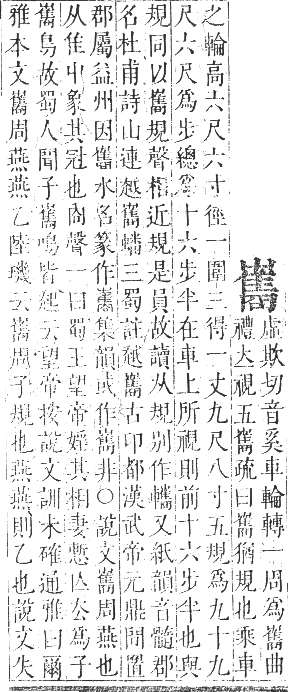 巂
虛欺切音奚車輪轉一周為巂曲
禮大視五巂疏曰巂猶規也乘車
之輪高六尺六寸徑一圍三得一丈九尺八寸五規為九十九
尺六尺為步總為十六步半在車上所視則前十六步半也與
規同以巂規聲相近規是員故讀从規別作轊又紙韻音髓郡
名杜甫詩山連越巂蟠三蜀註越巂古卭都漢武帝元鼎間置
郡屬益州因巂水名篆作巂集韻或作雟非○說文巂周燕也
从隹屮象其冠也㕯聲一曰蜀王望帝婬其相妻慙亾去為子
巂鳥故蜀人聞子巂鳴皆起云望帝按說文訓未確通雅曰爾
雅本文巂周燕燕乙陸璣云巂周子規也燕燕則乙也說文失